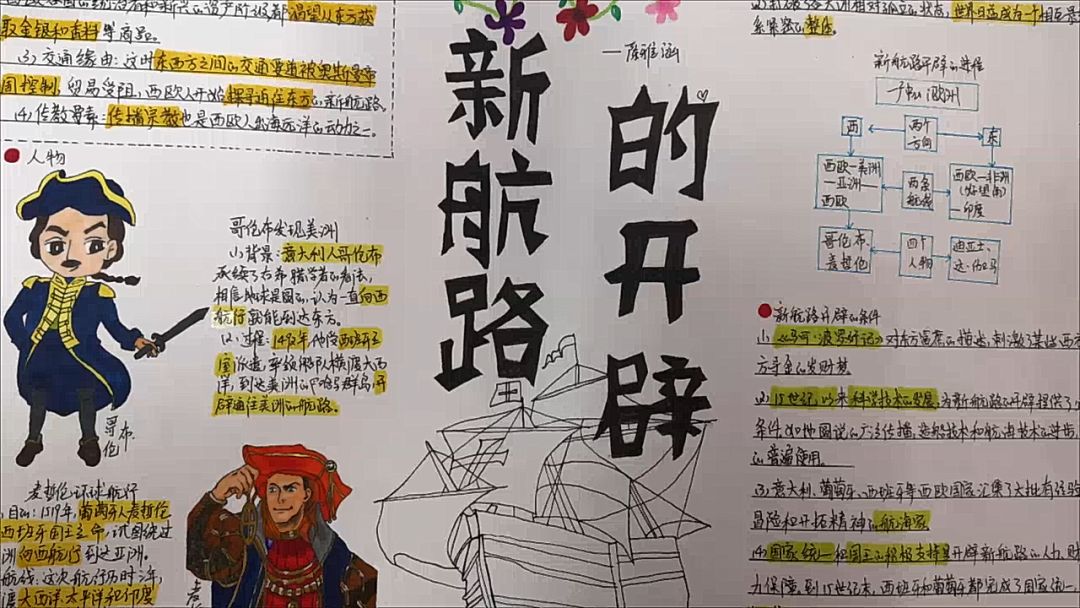 渴望从东方获
取金银和香料等商品。
(3)交通缘由:这时东西方之间的交通要道被奥斯曼帝
国控制,贸易受阻,西欧人开始探寻通往东方的新航路。
(4)传教要素:传播宗教也是西欧人出海远洋的动力之一。
人物
哥伦布
哥伦布发现美洲
(1)背景:意大利人哥伦布
承续了古希腊学者的看法,
相信地球是圆的,认为一直向西
航行就能到达东方。
(2)过程:1492年,他受西班牙王
室派遣,率领船队横渡大西
洋,到达美洲的巴哈马群岛,开
辟通往美洲的航路。
麦哲伦环球航行
目的:1519年,葡萄牙人麦哲伦
西班牙国王之命,试图绕过
洲向西航行到达亚洲。
航线:这次航行历时三年,
渡大西洋、太平洋和印度
新航路
的开辟
世界日益成为一个相互
系紧密的整体。
新航路开辟的过程
西
两个
方向
东
西欧—美洲
—亚洲—
西欧
两条
航线
西欧—非洲
(好望角)
—印度
哥伦布、
麦哲伦
四个
人物
迪亚士、
达·伽马
新航路开辟的条件
(1)《马可·波罗行记》对东方富裕的描述,刺激
方寻金的发财梦
(2)15世纪以来科学技术的发展,为新航路的开辟提供了
条件,如地圆说的广泛传播,造船技术和航海技术的进步,
的普遍使用。
(3)意大利、葡萄牙、西班牙等西欧国家汇集了大批有经验
冒险和开拓精神的航海家
(4)国家统一和国王的积极支持是开辟新航路的人力、财
力保障。到15世纪末,西班牙和葡萄牙都完成了国家统一,